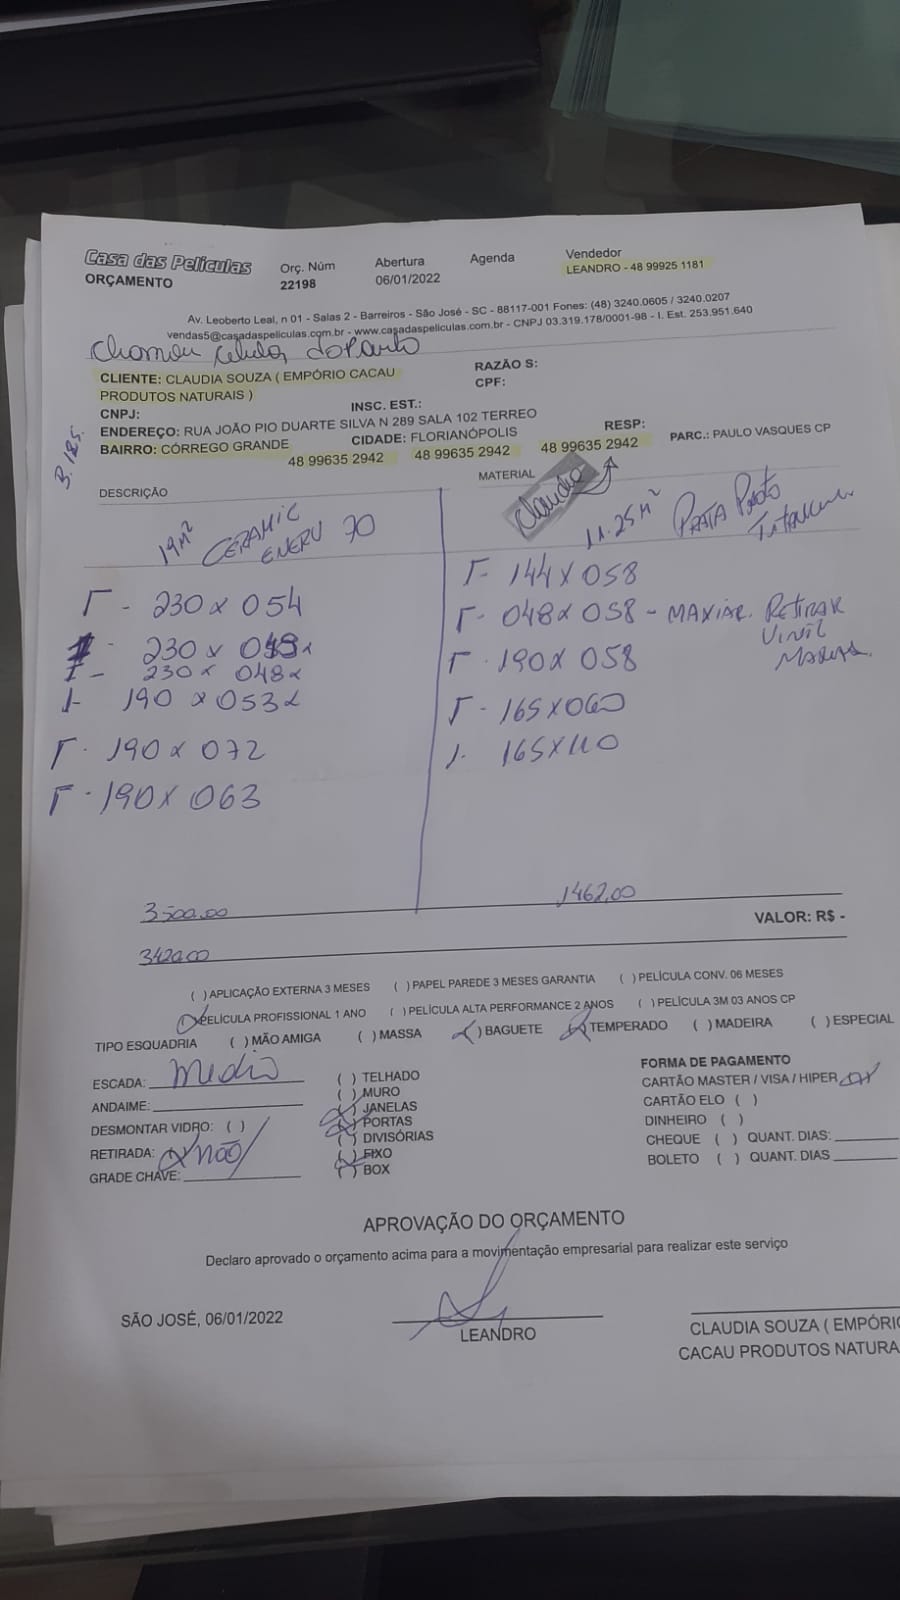 Casa das Películas
ORÇAMENTO
Orç. Núm
22198
Abertura
06/01/2022
Agenda
Vendedor
LEANDRO - 48 99925 1181
Av. Leoberto Leal, n 01 - Salas 2 - Barreiros - São José - SC - 88117-001 Fones: (48) 3240.0605 / 3240.0207
vendas5@casadaspeliculas.com.br - www.casadaspeliculas.com.br - CNPJ 03.319.178/0001-98 - I. Est. 253.951.640
CLIENTE: CLAUDIA SOUZA ( EMPÓRIO CACAU
PRODUTOS NATURAIS )
RAZÃO S:
CPF:
CNPJ:
INSC. EST.:
ENDEREÇO: RUA JOÃO PIO DUARTE SILVA N 289 SALA 102 TERREO
BAIRRO: CÓRREGO GRANDE
CIDADE: FLORIANÓPOLIS
RESP:
PARC.: PAULO VASQUES CP
48 99635 2942
48 99635 2942
48 99635 2942
B.185.
DESCRIÇÃO
MATERIAL
Claudia
19M² CERAMIC
ENERU 70
11.25M² PRATA
1- 230 x 054
230 x
1- 230 x 048
1- 190 x 053
1- 190 x 072
1- 190 x 063
1- 144 x 058
1- 048 x 058 - MAXIAR. RETIRAR
VINIL
1- 190 x 058
1- 165 x 060
1- 165 x 110
3500.00
1462,00
VALOR: R$ -
3420.00
( ) APLICAÇÃO EXTERNA 3 MESES ( ) PAPEL PAREDE 3 MESES GARANTIA ( ) PELÍCULA CONV. 06 MESES
(X) PELÍCULA PROFISSIONAL 1 ANO ( ) PELÍCULA ALTA PERFORMANCE 2 ANOS ( ) PELÍCULA 3M 03 ANOS CP
TIPO ESQUADRIA ( ) MÃO AMIGA ( ) MASSA (X) BAGUETE (X) TEMPERADO ( ) MADEIRA ( ) ESPECIAL
ESCADA: Medio
ANDAIME:
DESMONTAR VIDRO: ( )
RETIRADA: (X) não
GRADE CHAVE:
( ) TELHADO
( ) MURO
(X) JANELAS
(X) PORTAS
( ) DIVISÓRIAS
(X) FIXO
( ) BOX
FORMA DE PAGAMENTO
CARTÃO MASTER / VISA / HIPER (X)
CARTÃO ELO ( )
DINHEIRO ( )
CHEQUE ( ) QUANT. DIAS:
BOLETO ( ) QUANT. DIAS
APROVAÇÃO DO ORÇAMENTO
Declaro aprovado o orçamento acima para a movimentação empresarial para realizar este serviço
SÃO JOSÉ, 06/01/2022
LEANDRO
CLAUDIA SOUZA ( EMPÓRIO
CACAU PRODUTOS NATURA